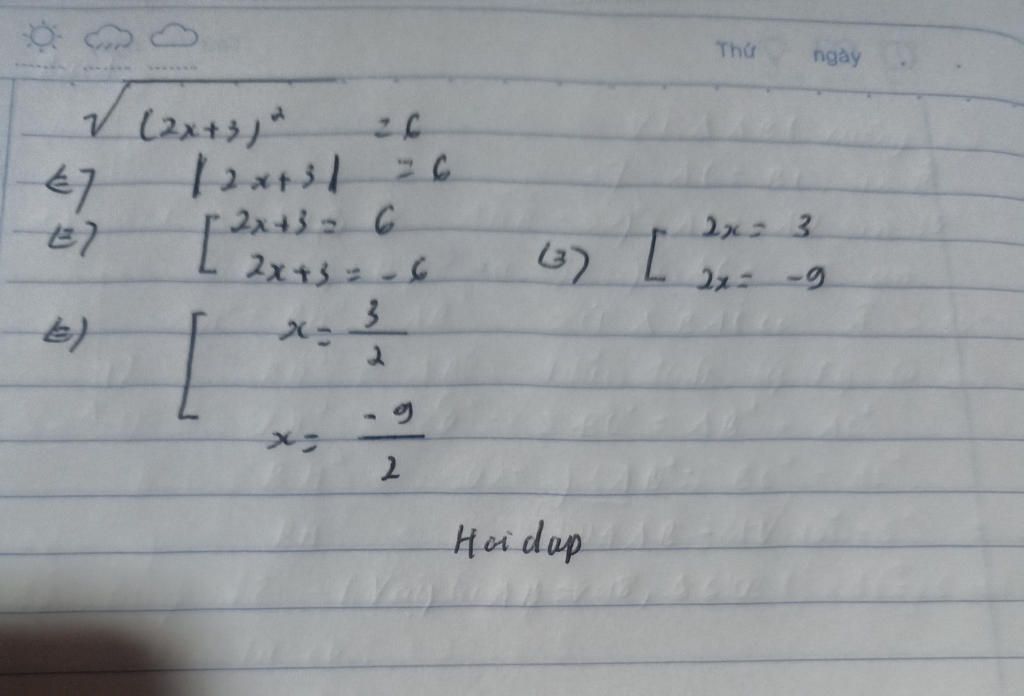 Thứ ngày
√(2x+3)² = 6
<=> |2x+3| = 6
<=> [ 2x+3 = 6
2x+3 = -6
<=> [ 2x = 3
2x = -9
<=> [ x = 3/2
x = -9/2
Hoidap